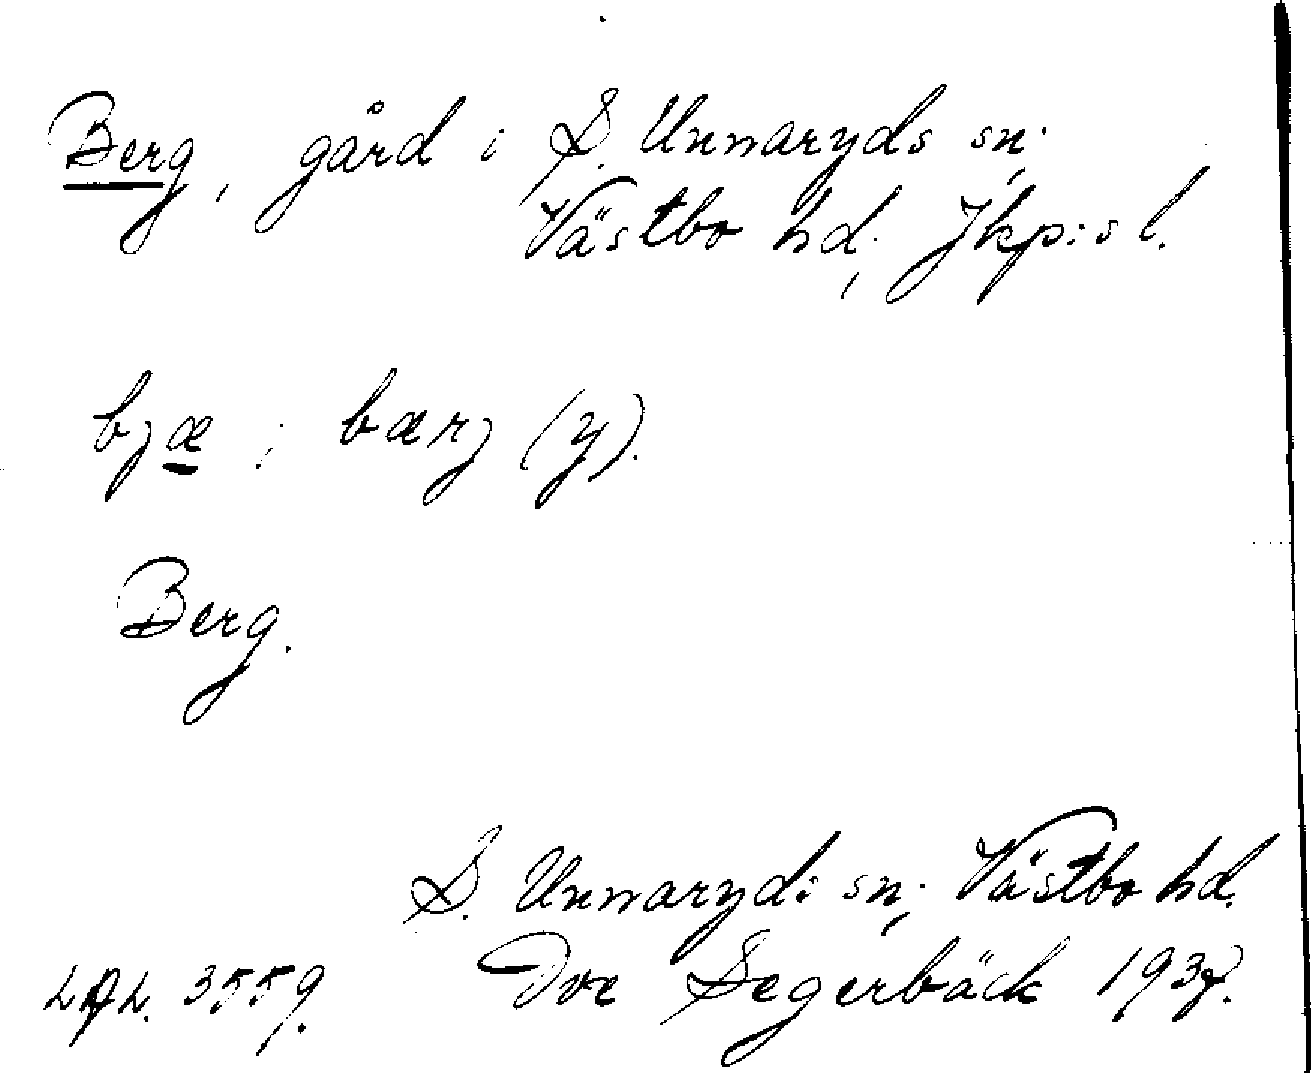 Berg, gård i S. Unnaryds sn.,
Västbo hd., Jkp:s l.
bjæ ; bærj (y).
Berg.
S. Unnaryds sn., Västbo hd.
3559. Segerbäck 1937.